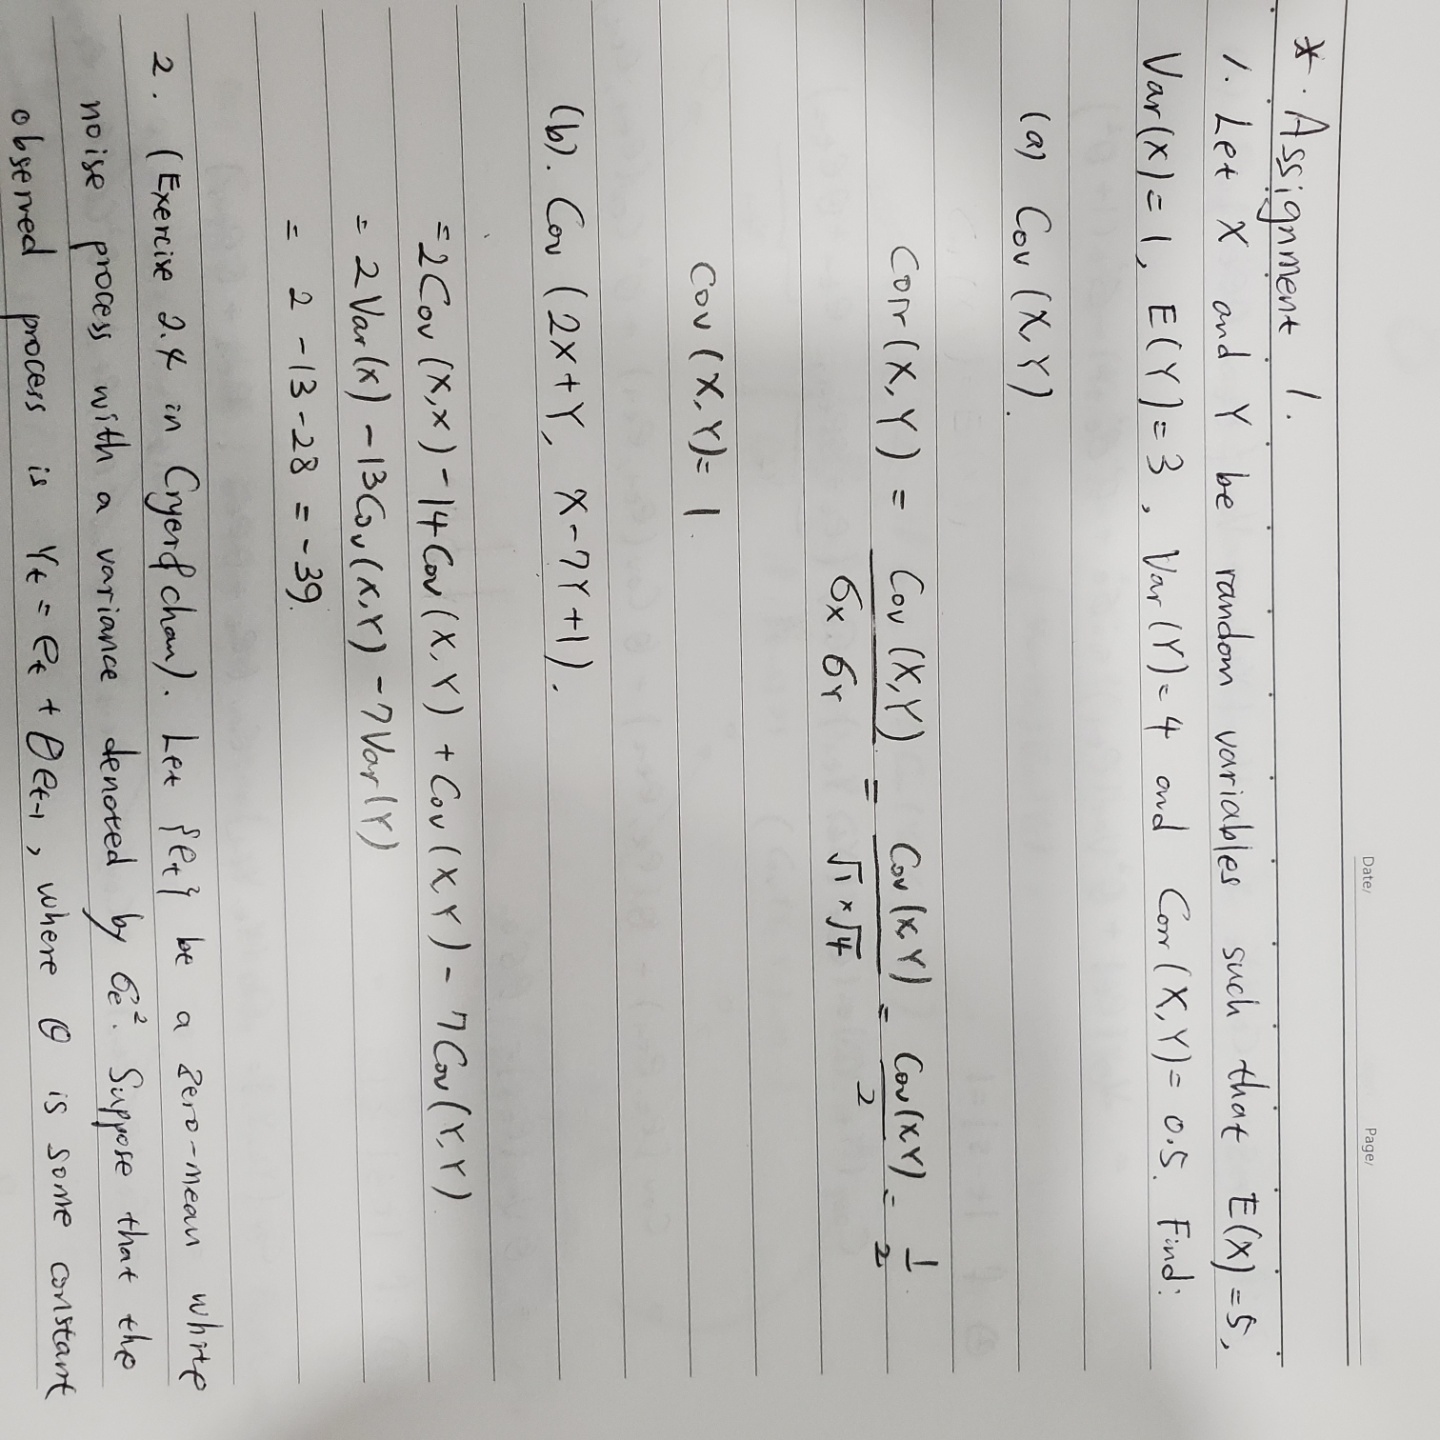 Date/ Page/
* Assignment 1.
1. Let X and Y be random variables such that E(X)=5,
Var(X)=1, E(Y)=3, Var(Y)=4 and Corr(X,Y)= 0.5. Find:
(a) Cov (X,Y).
Corr(X,Y) = Cov (X,Y) / 6x 6Y = Cov (X,Y) / √1 × √4 = Cov (X,Y) / 2 = 1/2
Cov (X,Y)= 1.
(b). Cov (2X+Y, X-7Y+1).
=2Cov (X,X) -14 Cov (X,Y) + Cov (X,Y) - 7 Cov (Y,Y)
= 2 Var(X) -13 Cov (X,Y) -7 Var(Y)
= 2 -13 -28 = -39.
2. (Exercise 2.4 in Cryer & Chan). Let {et} be a zero-mean white
noise process with a variance denoted by 6e². Suppose that the
observed process is Yt = et + θet-1, where θ is some constant